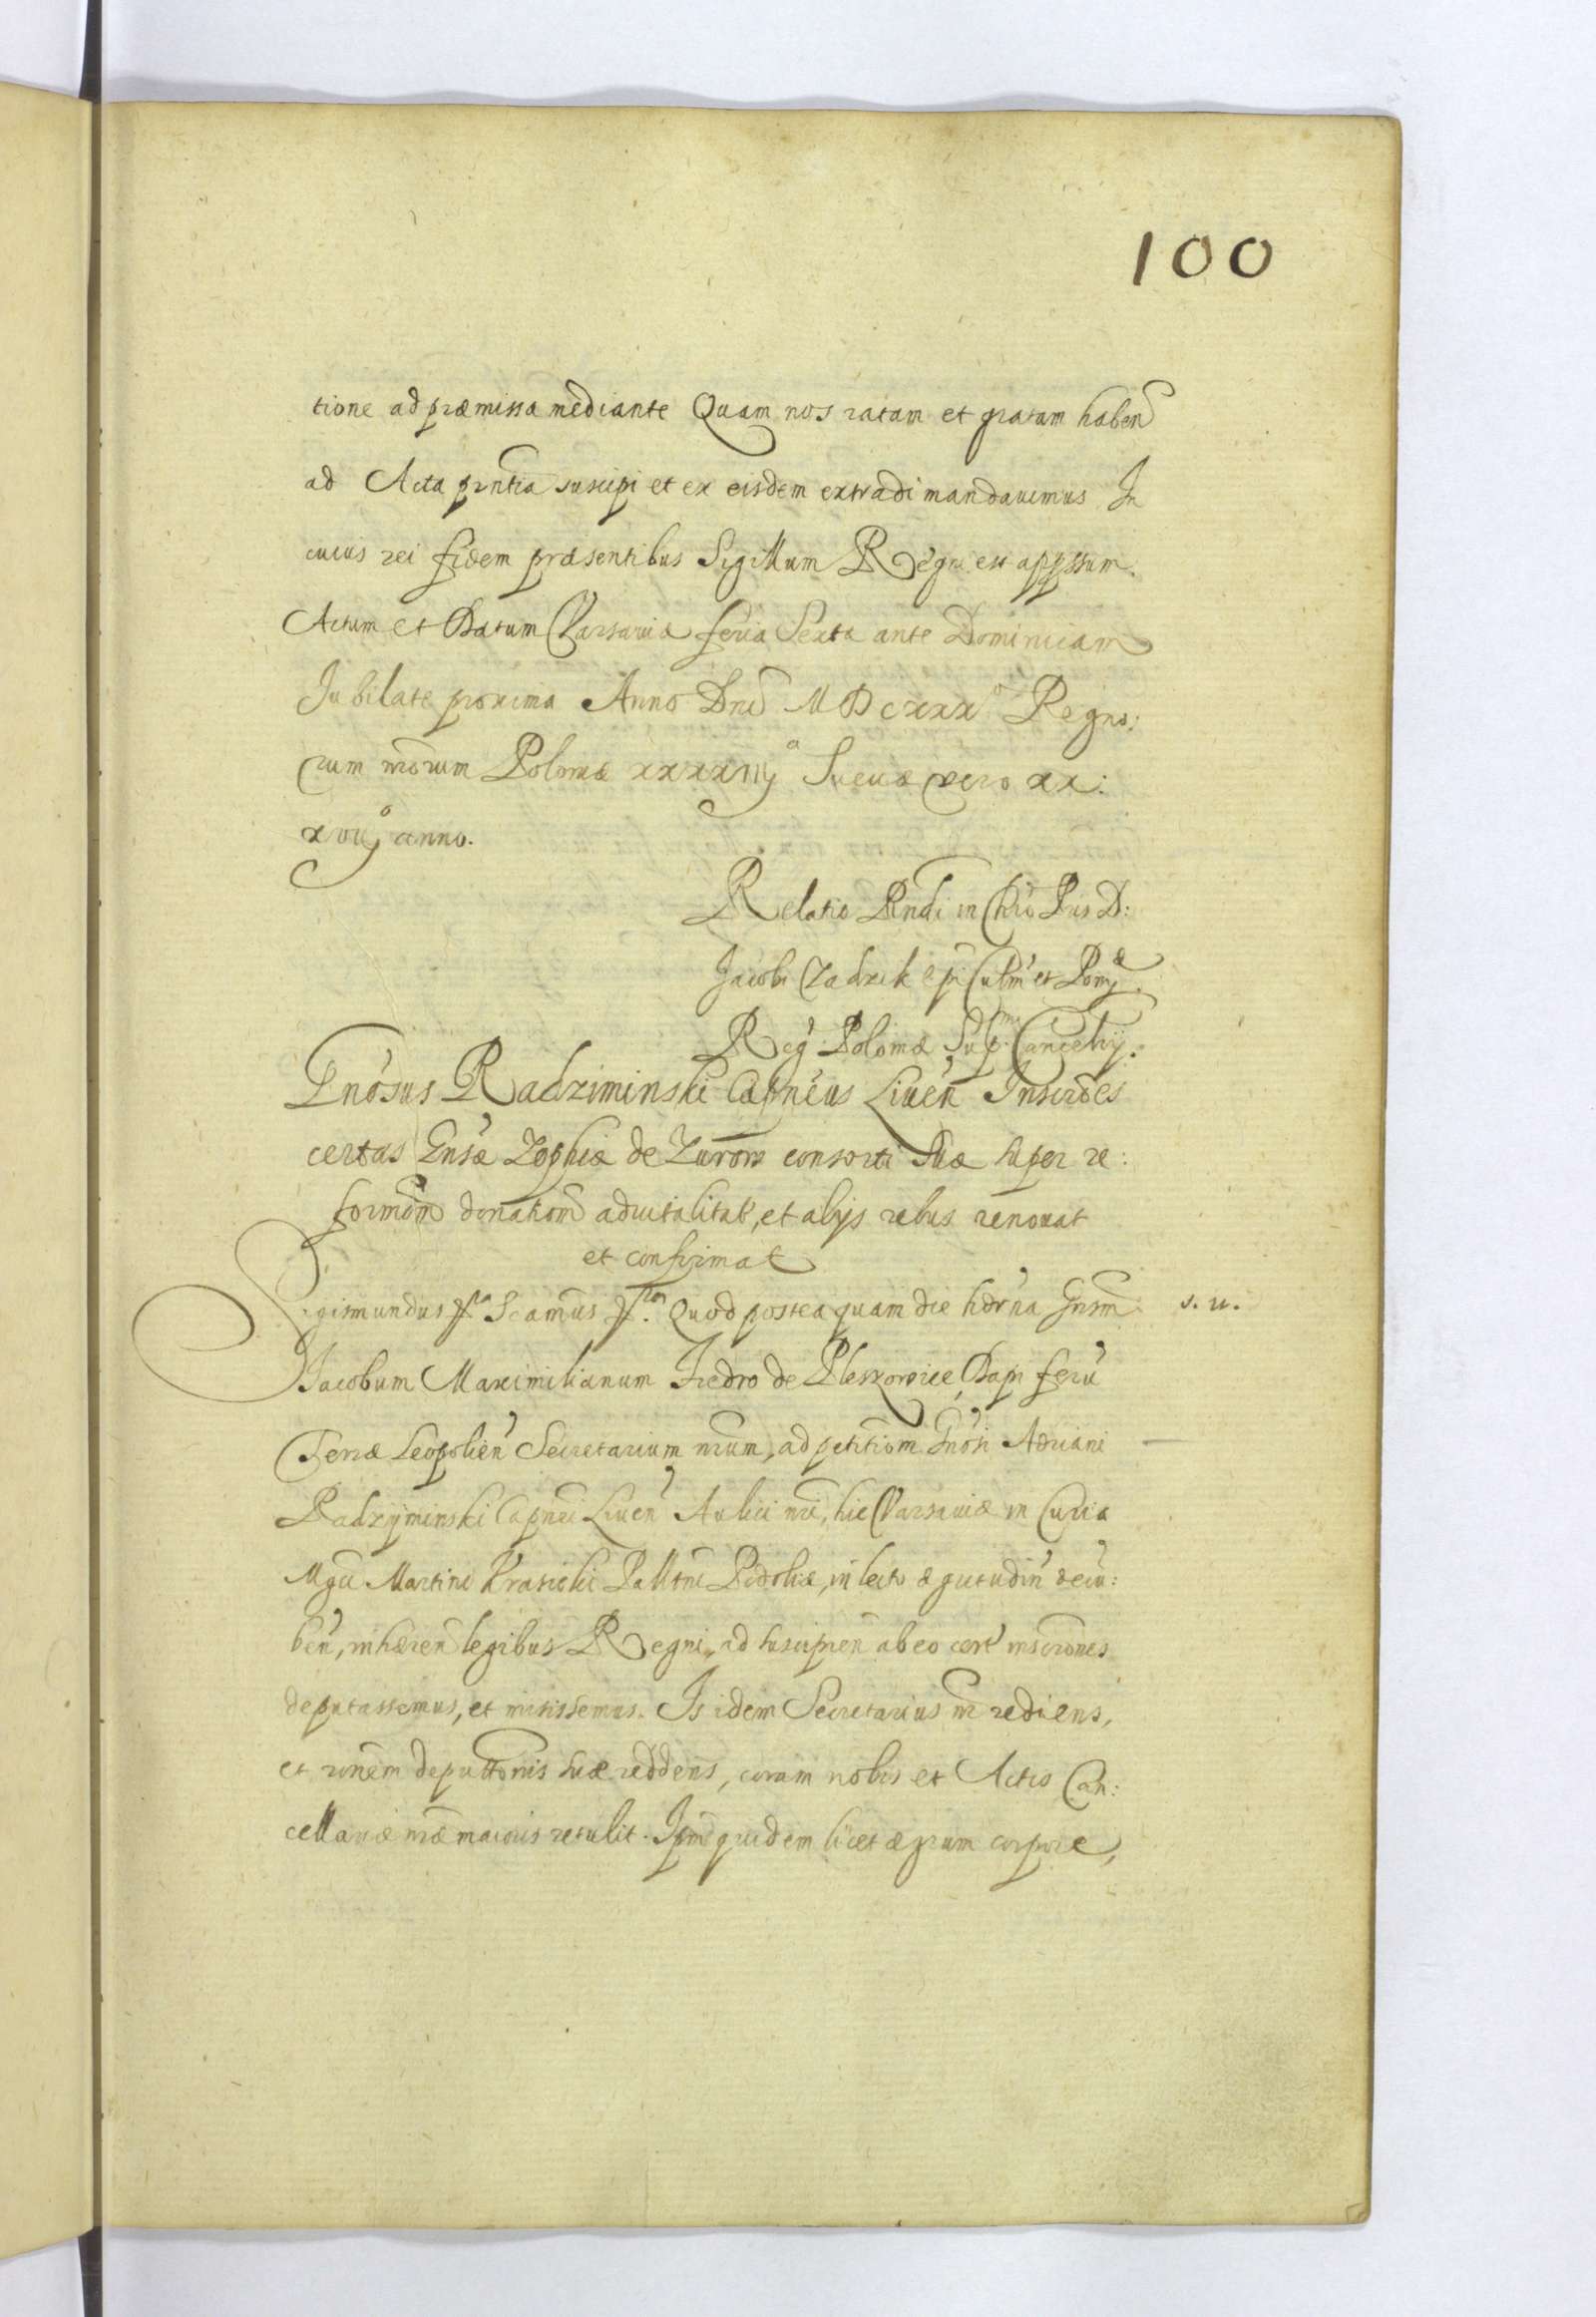 100
tione ad præmissa mediante Quam nos ratam et gratam haben
ad Acta pñtia suscipi et ex eisdem extradi mandauimus In
cuius rei fidem præsentibus Sigillum Regni est appssum.
Actum et Datum Varsauiæ feria Sexta ante Dominicam
Jubilate proxima Anno Dni MDCXXX° Regno:
rum nrorum Poloniæ xxxxiij° Sueciæ vero xx:
xvij° anno.
Relatio Rndi in Chro Pris D:
Jacobi Zadzik Epi Culm et Pom
Reg Poloniæ Supm Cancellrij.
Gnosus Radziminski Capneus Liuen Inscrōes
certas Gnsæ Zophiæ de Zurom consorti suæ super re:
formōm donatiom aduitalitat, et alijs rebus renouat
et confirmat
Sigismundus ffca Scamus ffton. Quod postea quam die hdrna Gnsm s. u.
Jacobum Maximilianum Fredro de Pleszowice, Dapiferū
Terræ Leopolien Secretarium nrum, ad petitiom Gnosi Adriani
Radzijminski Capnei Liuen Aulici nri, hic Varsauiæ in Curia
Mgci Martini Krasicki Palltni Podoliæ, in lecto ægritudin decū:
ben, inhæren legibus Regni, ad suscipien ab eo cert inscrones
deputassemus, et misissemus. Is idem Secretarius nr rediens,
et ronem deputtonis suæ reddens, coram nobis et Actis Can:
cellariæ nræ maioris retulit. Ipm quidem licet ægrum corpore,